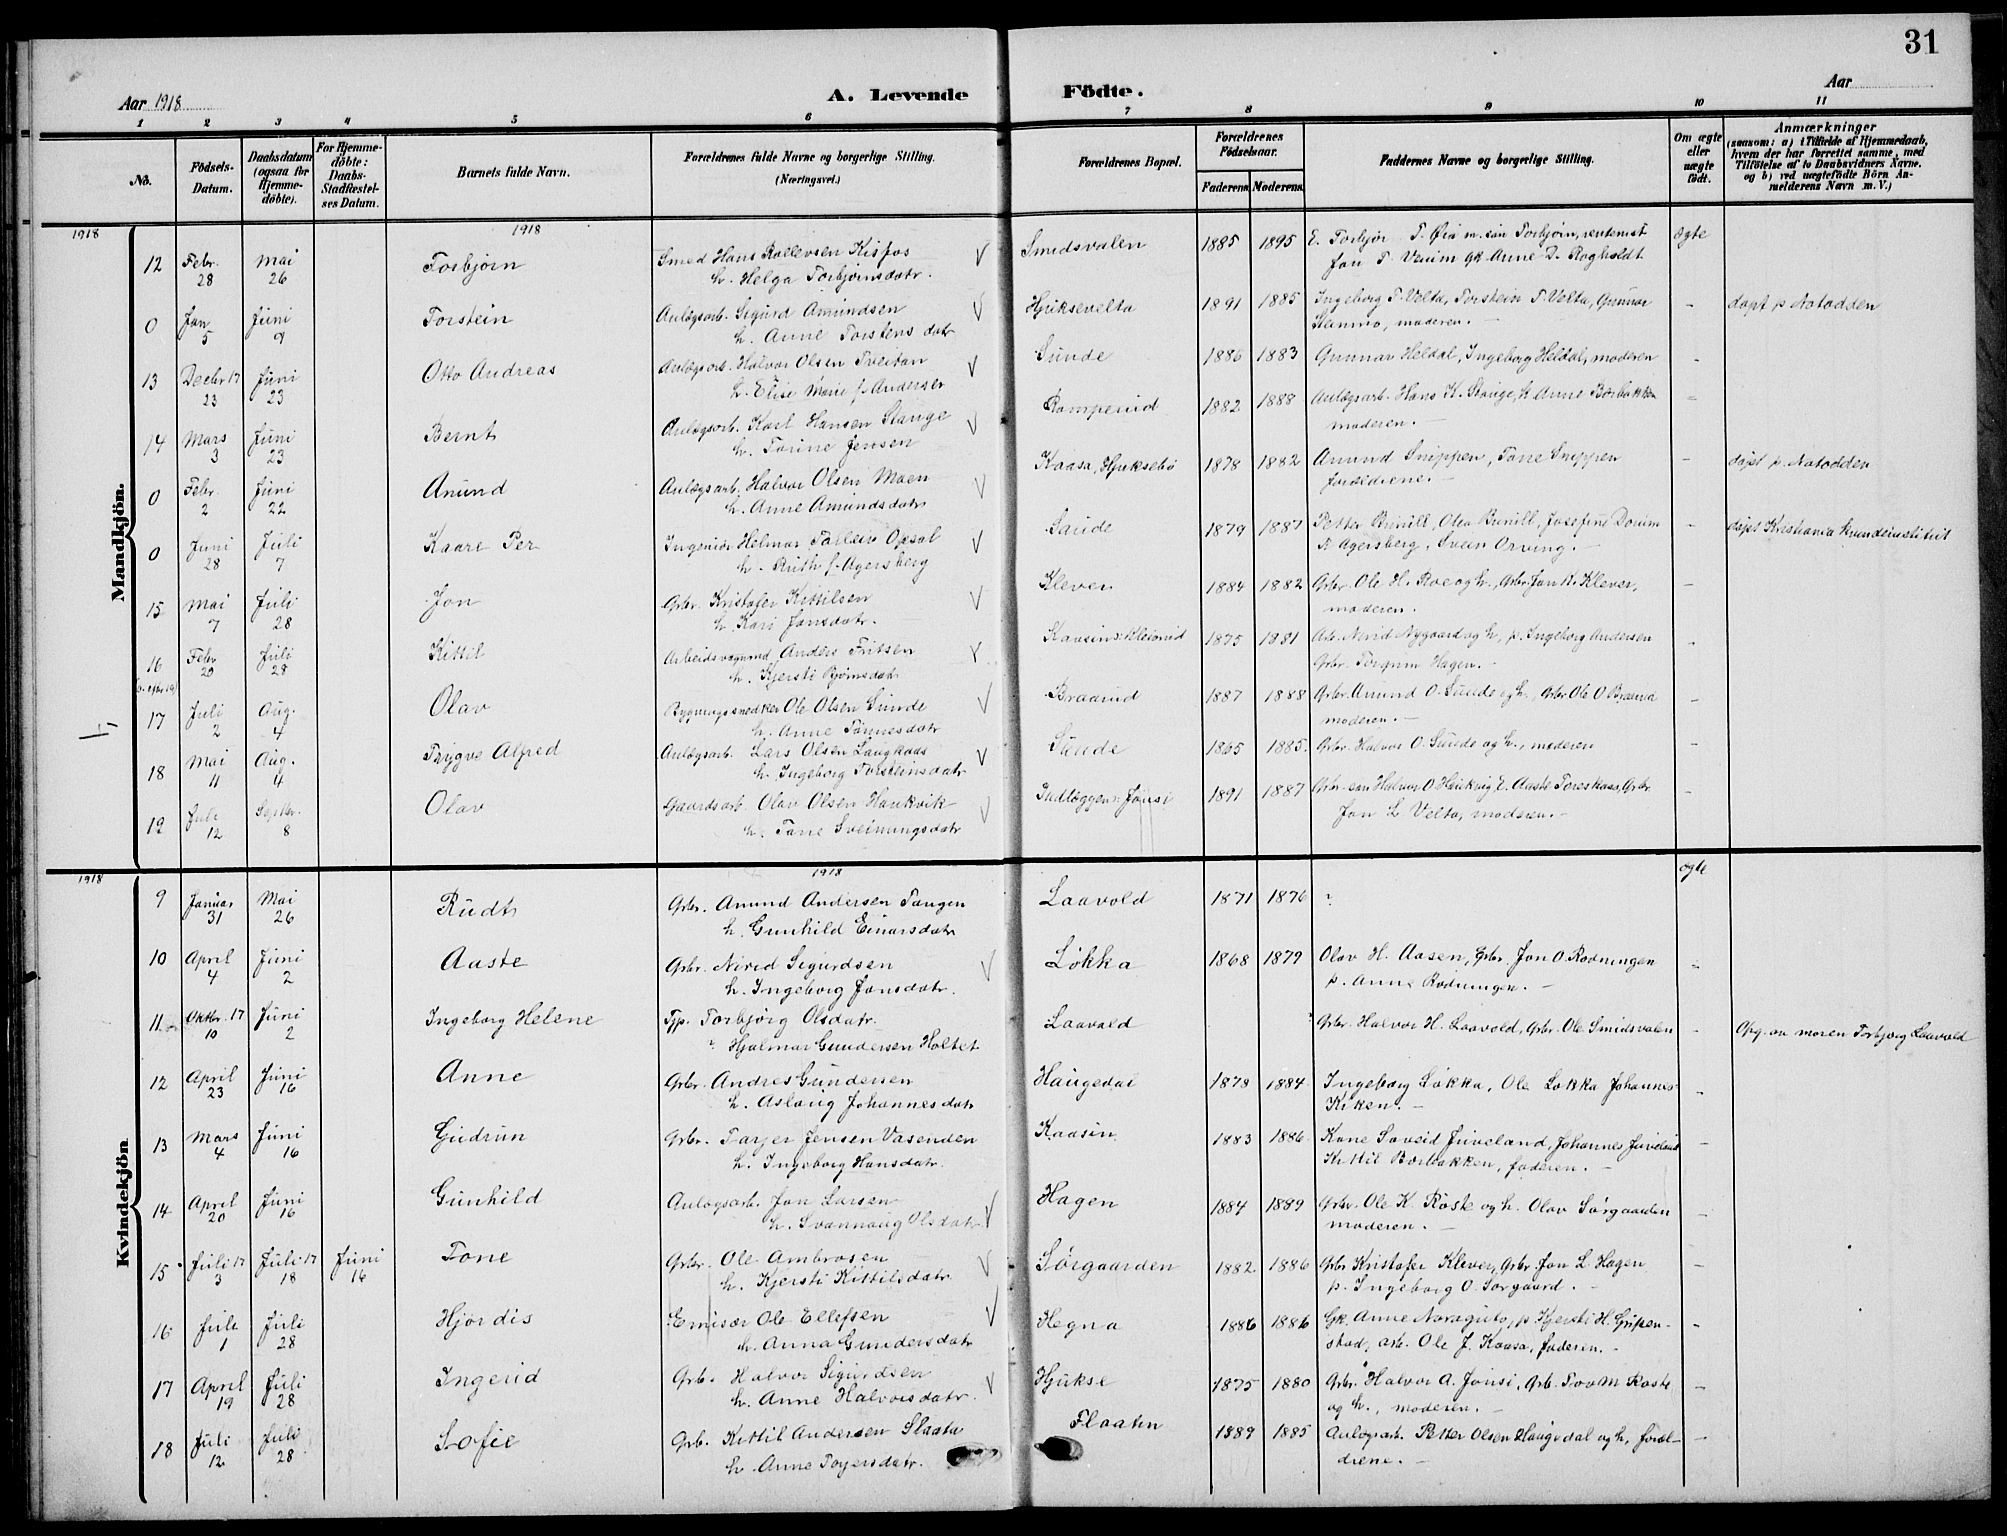 31
Aar 1918
A. Levende
Födte.
Aar
1 2 3 4 5 6 7 8 9 10 11
No.
Födsels-Datum.
Daabsdatum (ogsaa for Hjemme-döbte).
For Hjemme-döbte: Daabs-Stadfæstel-ses Datum.
Barnets fulde Navn.
Forældrenes fulde Navne og borgerlige Stilling. (Næringsvei.)
Forældrenes Bopæl.
Forældrenes Födselsaar.
Faderens Moderens
Faddernes Navne og borgerlige Stilling.
Om ægte eller uægte födt.
Anmærkninger
(saasom: a) i Tilfælde af Hjemmedaab, hvem der har forrettet samme, med Tilföielse af to Daabsvidners Navne, og b) ved uægtefödte Börn Anmelderens Navn m. V.)
Mandkjön.
1918
1918
12 Febr. 28 Mai 26 Torbjørn Smed Hans Rollevsen Kisfos
h. Helga Torbjørnsdatr. Smedsvalen 1885 1895 ægte
0 Jan 5 Juni 9 Torstein Anlægsarb. Sigurd Amundsen
h. Anne Torstensdatr Hjuksevelta 1891 1885 Ingeborg T. Velta, Torstein T. Velta, Gunnar
moderen. - døpt p Notodden
13 Decbr 17 23 Juni 23 Otto Andreas Anlægsarb. Halvor Olsen Tveitan
h. Elise Marie f. Andersen Sunde 1886 1883 Gunnar Heldal, Ingeborg Heldal, moderen -
14 Mars 3 Juni 23 Bernt Anlægsarb. Karl Hansen Stange
h. Torine Jensen Romperud 1882 1888 Anlægsarb. Hans K. Stange, k Anne Borbakken
moderen. -
0 Febr 2 Juni 22 Anund Anlægsarb. Halvor Olsen Moen
h. Anne Amundsdatr Kaasa, Hjuksebø 1878 1882 Amund Snippen, Tone Snippen
forældrene. - døpt p. Notodden
0 Juni 28 Juli 7 Kaare Per Ingeniør Helmar Opsal
h. Ruth f. Agersberg Saude 1879 1887 Petter Olea Josefine
Agersberg, Svein Orving. - døpt Kristiania Kvindeinstitut
15 Mai 7 Juli 28 Jon Grbr. Kristofer Kittilsen
h. Kari Jonsdatr. Klever 1884 1882 Grbr. Ole H. Roe og h., Grbr. Jon K. Klever,
moderen. -
16 Febr 20 Juli 28 Kittil Anders Fritsen
h. Kjersti Bjørnsdatr 1875 1881 Arb. Nirid Nygaard og h, p. Ingeborg Andersen
Grbr. Torgrim Hagen. -
17 Juli 2 Aug. 4 Olav Bygningssnedker Ole Olsen Sunde
h. Anne Tonnesdatr Braarud 1887 1888 Grbr. Amund O. Sunde og h. Grbr Ole O
moderen. -
18 Mai 11 Aug. 4 Trygve Alfred Anlægsarb. Lars Olsen Langkaas
h. Ingeborg Torsteinsdatr Sunde 1865 1885. Grbr. Halvor O. Sunde og h., moderen -
19 Juli 12 Septbr. 8 Olav Gaardsarb. Olav Olsen Haukvik
h. Tone Sveinungsdatr Jønsi 1891 1887 Aaste Toreskaas, Grbr.
Jon L Velta, moderen. -
Kvindekjön
1918
1918
ægte
9 Januar 31 Mai 26 Rudt Grbr. Anund Andersen Tangen
h. Gunhild Einarsdatr Laavold 1871 1876 ?
10 April 4 Juni 2 Aaste Grbr. Nirid Sigurdsen
h. Ingeborg Jonsdatr. Løkka 1868 1879 Olav H. Aasen, Grbr. Jon O. Rodningen
p. Anne Rodningen. -
11 Oktbr. 17 10 Juni 2 Ingeborg Helene Tjp. Torbjørg Olsdatr.
? Hjalmar Gundersen Holtet Laavold Grbr. Halvor H. Laavold, Grbr. Ole Smidsvalen - Opg. av moren Torbjørg Laavold
12 April 23 Juni 16 Anne Grbr. Andres Gundersen
h. Aslaug Johannesdatr Haugedal 1878 1884 Ingeborg Løkka, Ole Løkka Johannes
Kiken. -
13 Mars 4 Juni 16 Gudrun Grbr. Tarjer Jensen Vasenden
h. Ingeborg Hansdatr. Kaasin 1883 1886 Kone Juveland, Johannes Juveland
Kittil Borbakken, faderen. -
14 April 20 Juni 16 Gunhild Anlægsarb. Jon Larsen
h. Svannaug Olsdatr Hagen 1884 1889 Grbr. Ole K. Røste og h. Olav Sørgaarden
moderen. -
15 Juli 17 3 Juli 17 18 Juni 16 Tone Grbr. Ole Ambrosen
h. Kjersti Kittilsdatr Sørgaarden 1882 1886 Grbr Kristofer Klever, Grbr. Jon L Hagen
p. Ingeborg O. Sørgaard. -
16 Juli 1 Juli 28 Hjørdis Emisær Ole Ellefsen
h. Anna Gundersdatr Hegna 1886 1886 Gk. Anne p Kjersti H. Gripen-
stad, arb. Ole J. Kaasa, faderen. -
17 April 19 Juli 28 Ingerid Grb. Halvor Sigurdsen
h. Anne Halvorsdatr. Hjukse 1875 1880 Grbr. Halvor A. Jønsi, Grb. Tov M Roste
og h., moderen. -
18 Juli 12 Juli 28 Sofie Grb. Kittil Andersen Slaata
h. Anne Toyersdatr. Flaaten 1889 1885 Anlægsarb. Petter Olsen Haugedal og h, foræl-
drene. -